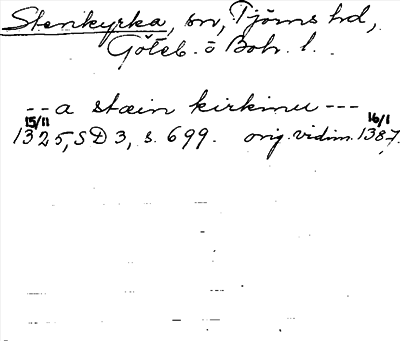 Stenkyrka, sn, Tjörns hd,
Göteb. o Boh. l.
--a stæin kirkinu---
15/11 16/1
1325, SD 3, s. 699. orig. vidim. 1387.